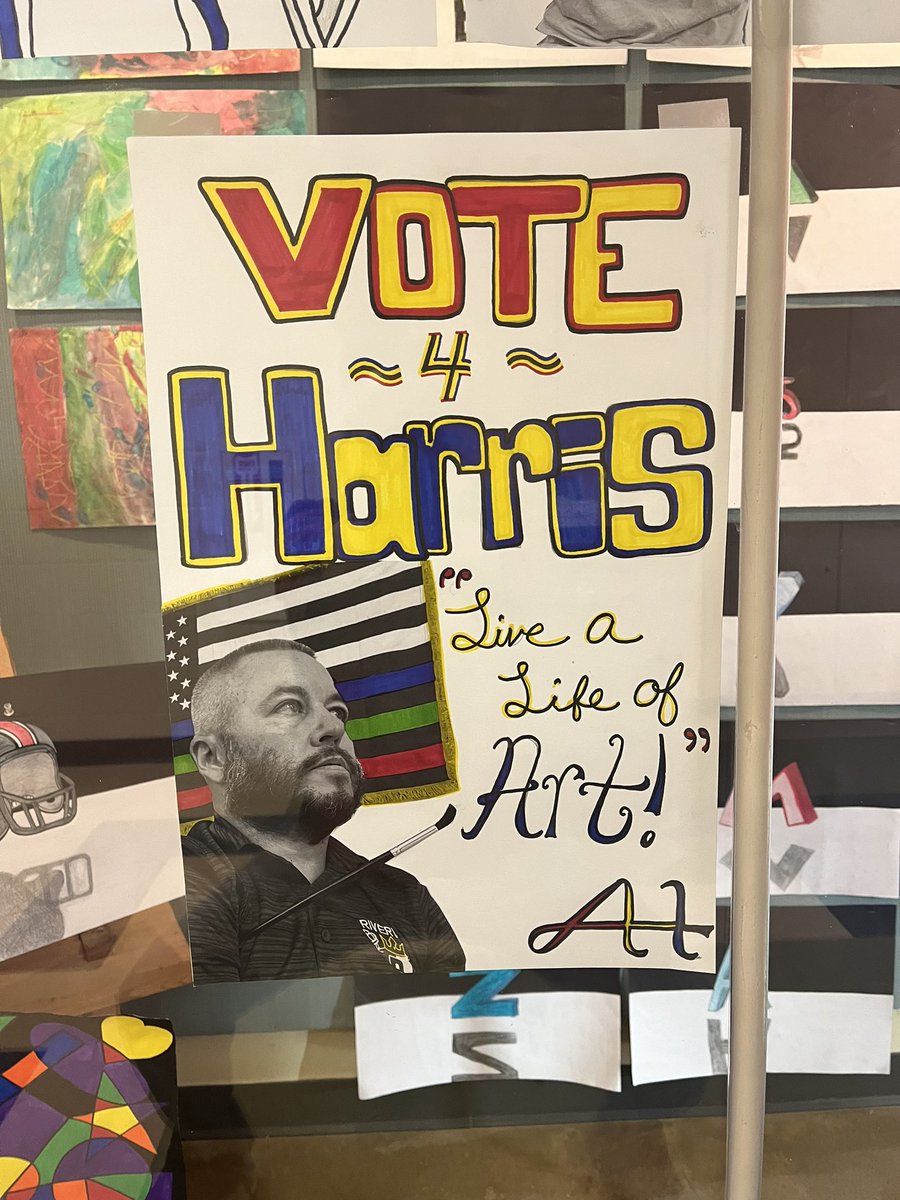 VOTE
~ 4 ~
Harris
"Live a
Life of
Art!"
AH